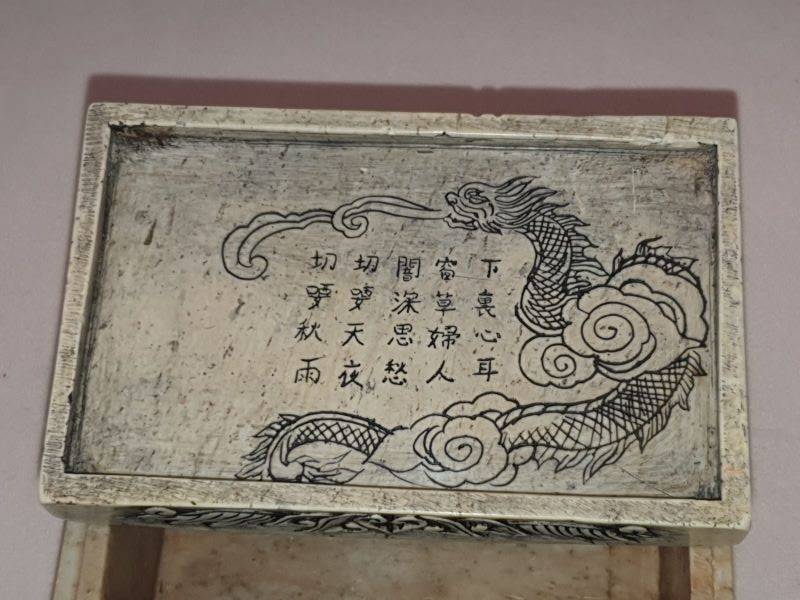 下裏心耳
窗草婦人
闇深思愁
切天夜
切秋雨